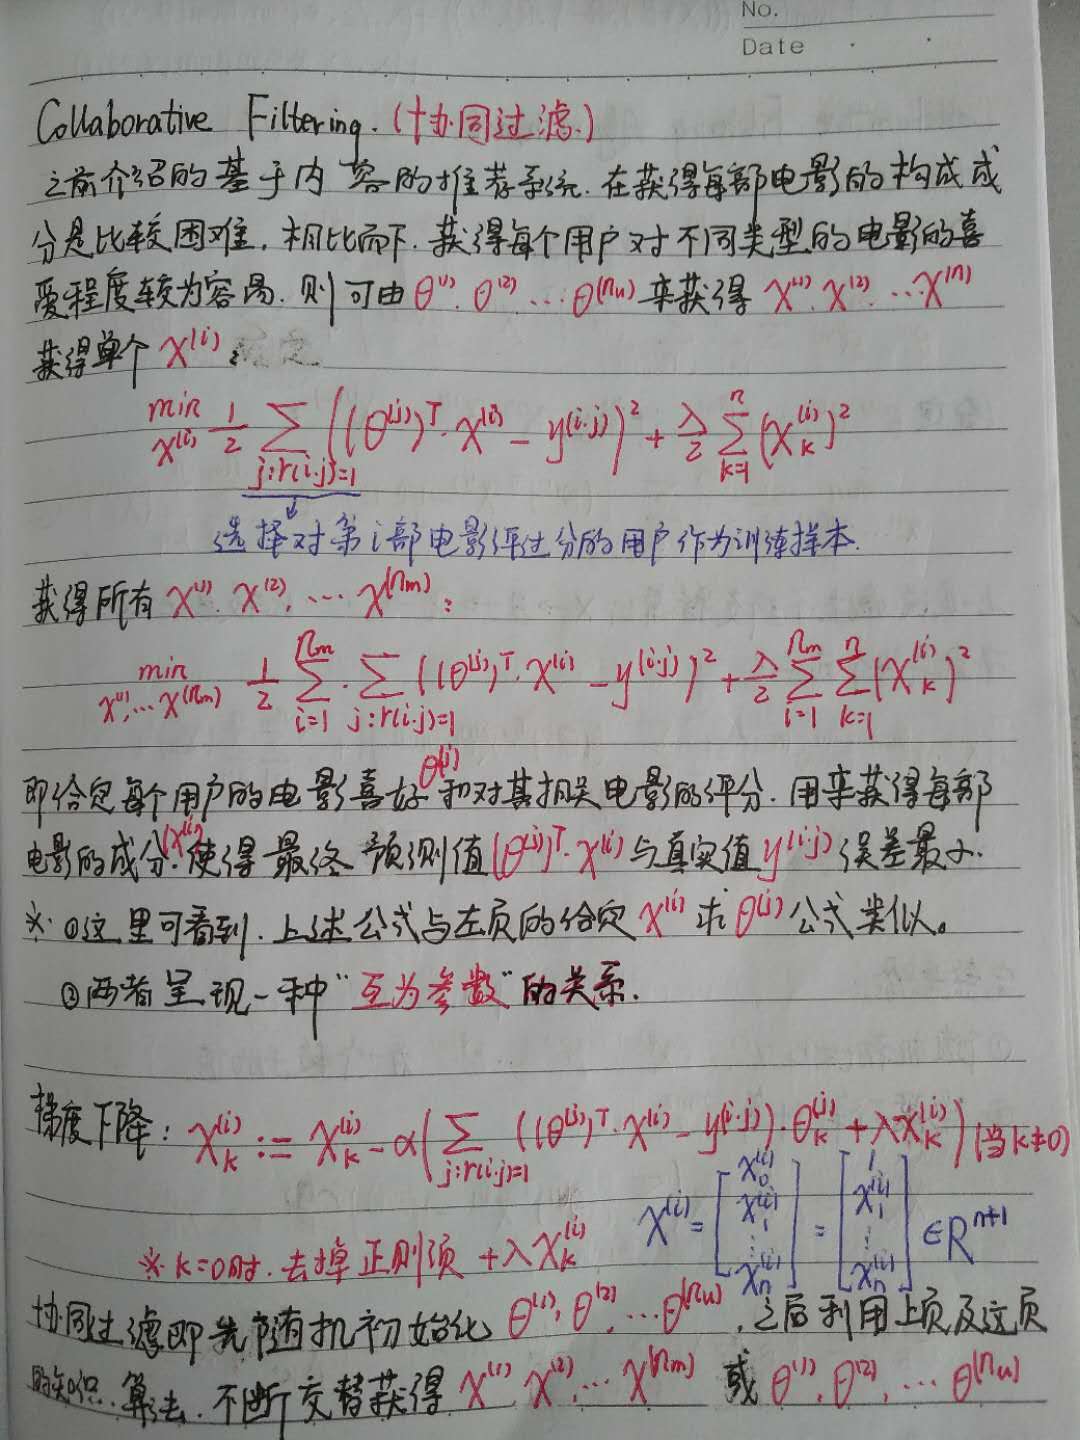 No.
Date
Collaborative Filtering.(协同过滤.)
之前介绍的基于内容的推荐系统.在获得每部电影的构成成
分是比较困难,相比而下.获得每个用户对不同类型的电影的喜
爱程度较为容易.则可由θ⁽¹⁾.θ⁽²⁾…θ⁽ⁿᵤ⁾来获得 x⁽¹⁾.x⁽²⁾.…x⁽ⁿ⁾
获得单个 x⁽ⁱ⁾:
min_{x^{(i)}} 1/2 ∑_{j:r(i.j)=1} ((θ^{(j)})^T·x^{(i)} - y^{(i.j)})^2 + λ/2 ∑_{k=1}^{n} (x_k^{(i)})^2
选择对第i部电影评过分的用户作为训练样本.
获得所有 x^{(1)}.x^{(2)}.…x^{(n_m)}:
min_{x^{(1)},…x^{(n_m)}} 1/2 ∑_{i=1}^{n_m}·∑_{j:r(i.j)=1} ((θ^{(j)})^T·x^{(i)} - y^{(i.j)})^2 + λ/2 ∑_{i=1}^{n_m} ∑_{k=1}^{n} (x_k^{(i)})^2
即给定每个用户的电影喜好θ^{(j)}和对其相关电影的评分.用来获得每部
电影的成分(x^{(i)}).使得最终预测值(θ^{(j)})^T·x^{(i)}与真实值y^{(i.j)}误差最小.
※.①这里可看到.上述公式与左页的给定x^{(i)}求θ^{(j)}公式类似。
②两者呈现一种“互为参数”的关系.
梯度下降: x_k^{(i)} := x_k^{(i)} - α(∑_{j:r(i.j)=1} ((θ^{(j)})^T·x^{(i)} - y^{(i.j)})·θ_k^{(j)} + λx_k^{(i)}) (当k≠0)
x^{(i)} = [x_0^{(i)} x_1^{(i)} ⋮ x_n^{(i)}] = [1 x_1^{(i)} ⋮ x_n^{(i)}] ∈R^{n+1}
※k=0时.去掉正则项 +λx_k^{(i)}
协同过滤即先随机初始化θ^{(1)}.θ^{(2)},…θ^{(n_u)},之后利用上页及这页
的知识.算法.不断交替获得x^{(1)}.x^{(2)}.…x^{(n_m)} 或θ^{(1)}.θ^{(2)},…θ^{(n_u)}